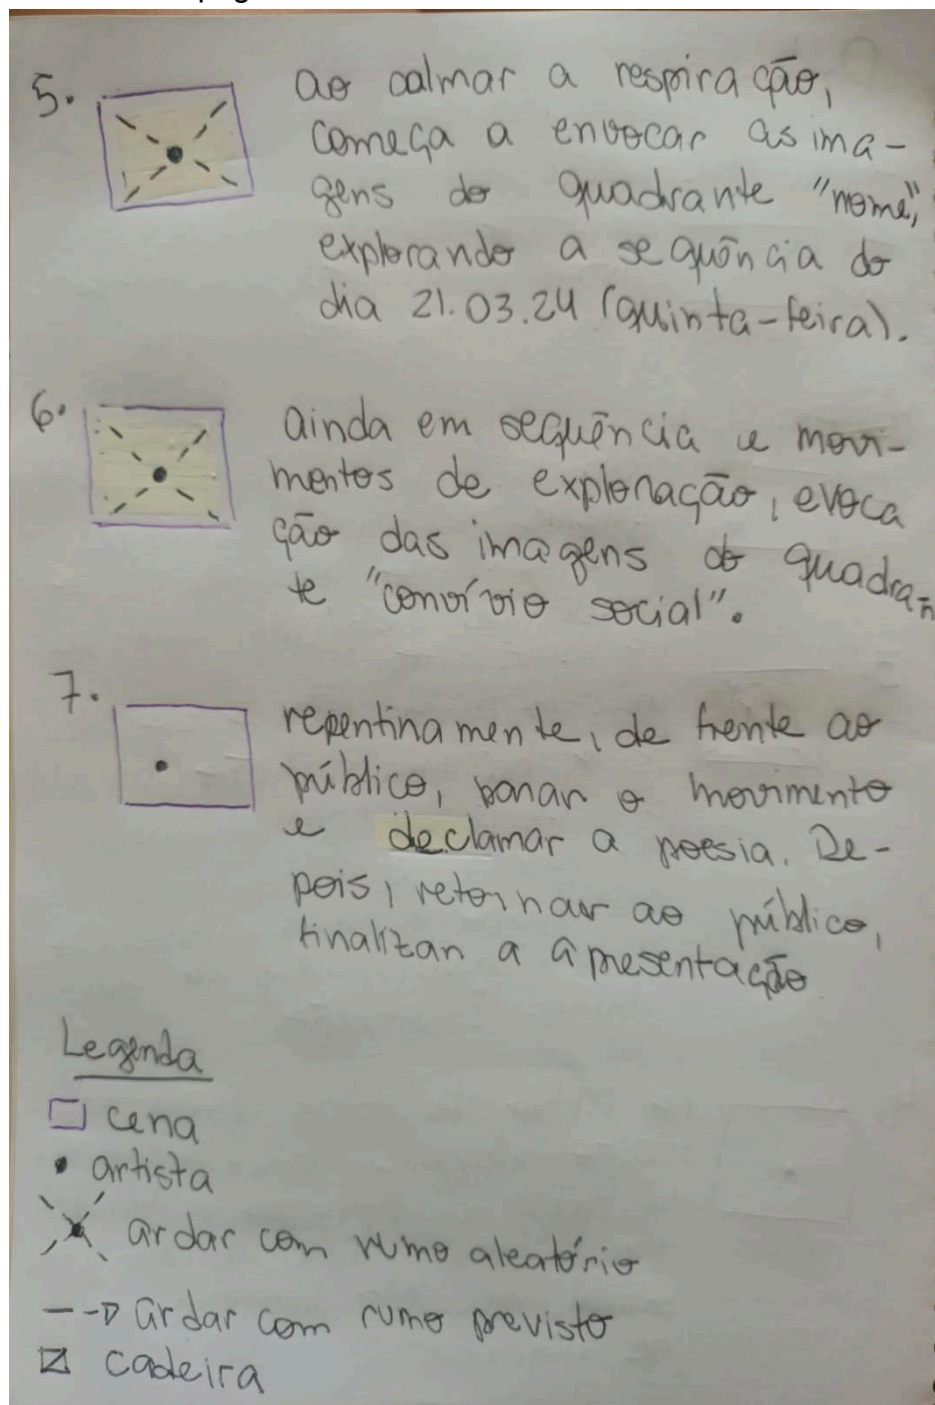 5. ao calmar a respiração,
começa a envocar as ima-
gens do quadrante "nome",
explorando a sequência do
dia 21.03.24 (quinta-feira).
6. ainda em sequência e movi-
mentos de exploração, evoca
ção das imagens do quadran
te "convívio social".
7. repentinamente, de frente ao
público, parar o movimento
e declamar a poesia. De-
pois, retornar ao público,
finalizar a apresentação
Legenda
cena
artista
andar com rumo aleatório
andar com rumo previsto
cadeira